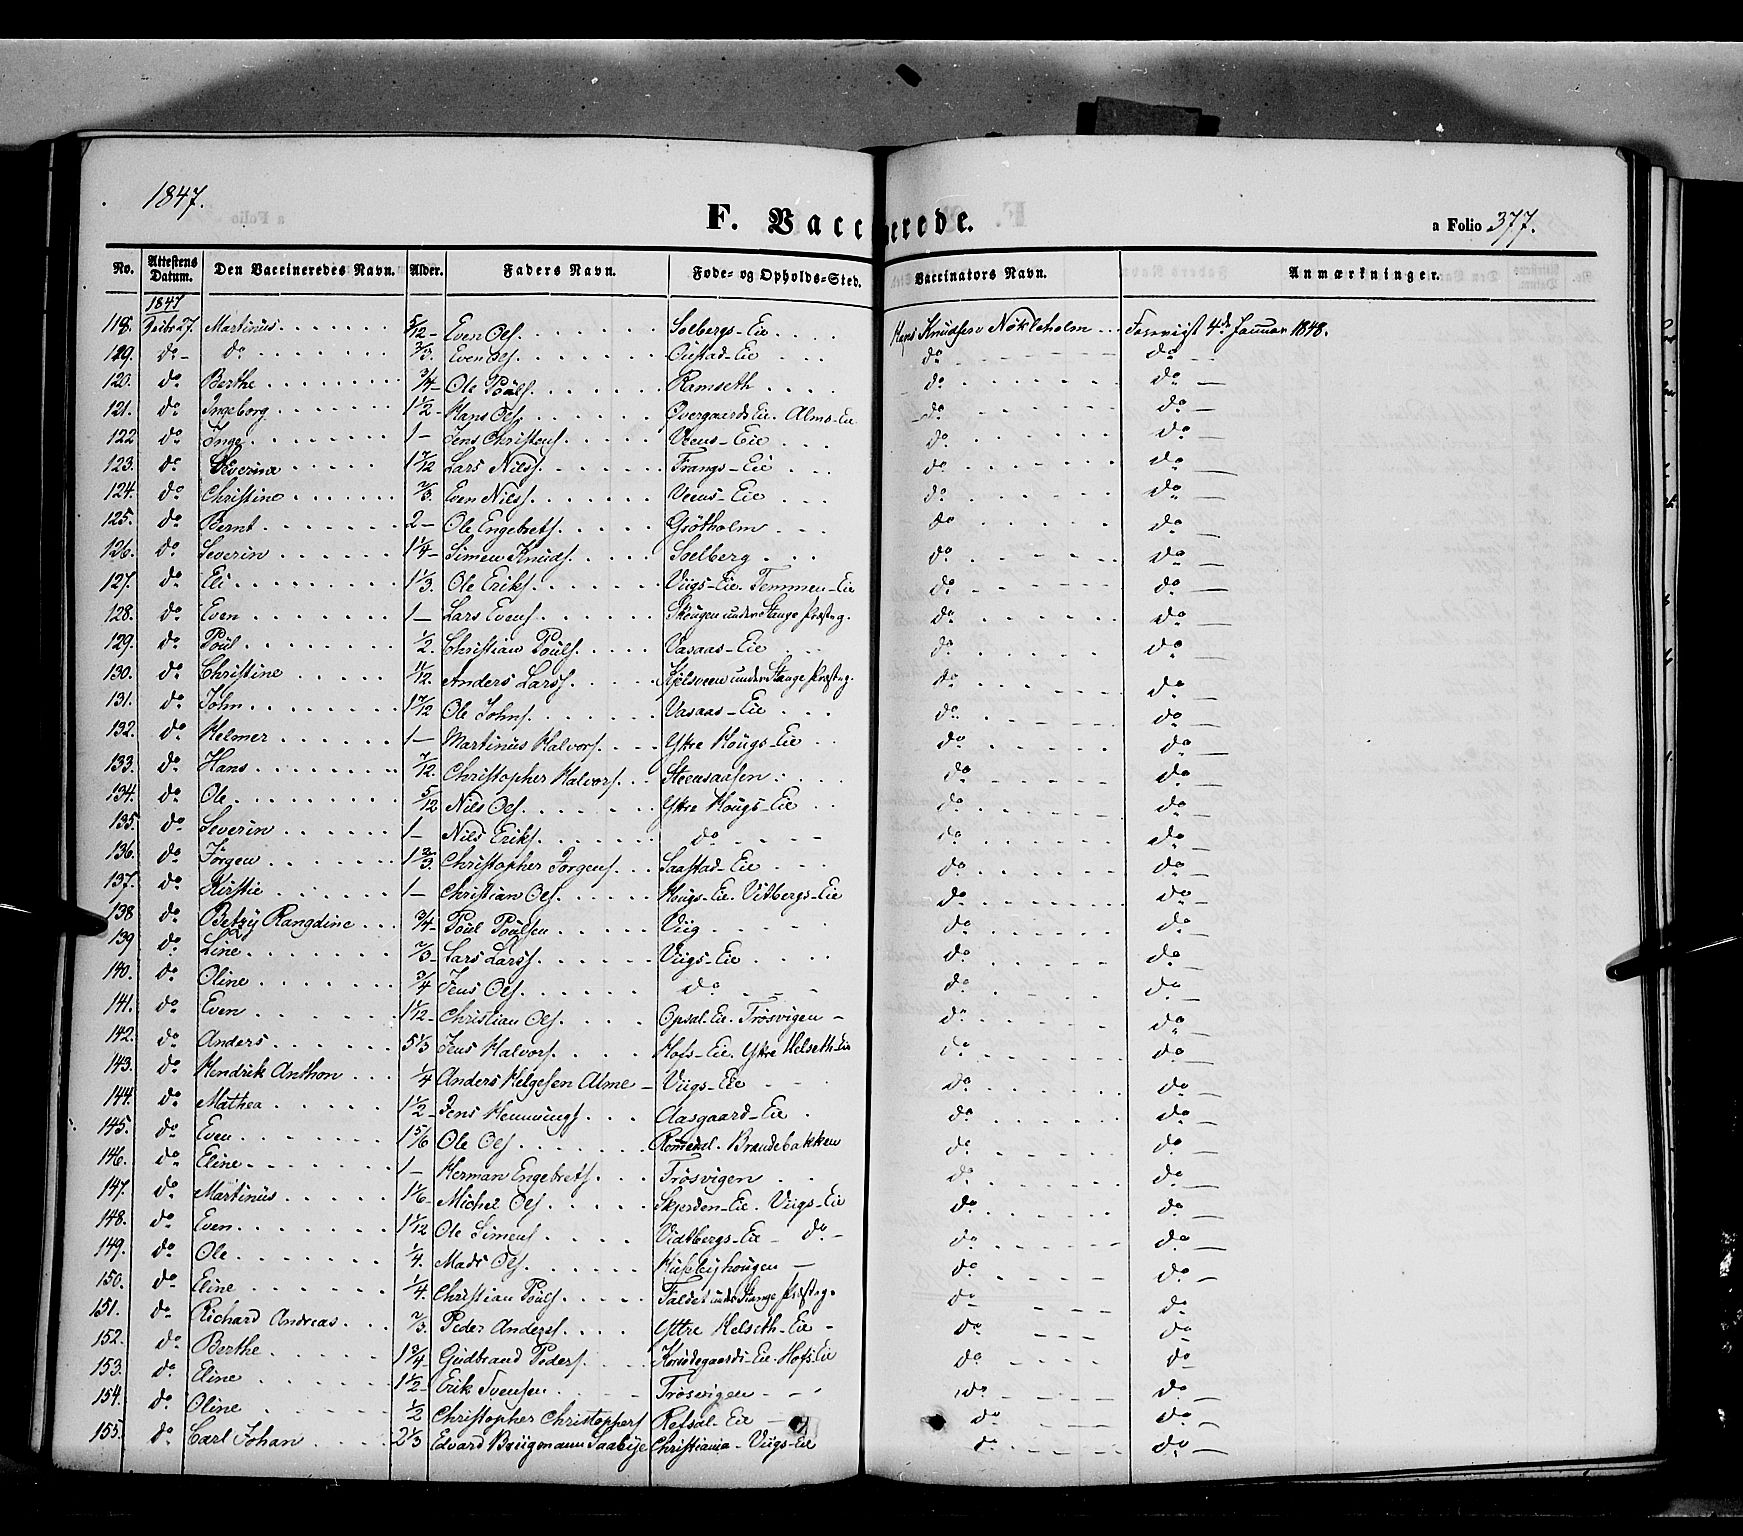 1847.
F. Vaccinerede.
a Folio 377.
No. Attestens Datum. Den Vaccineredes Navn. Alder. Faders Navn. Føde- og Opholds-Sted. Vaccinators Navn. Anmærkninger.
1847
118. Martinus 5/12 Even Ols. Solbergs-Eie Hans Knudsen Nökleholm Foreviist 4de Januar 1848.
119. do do 2/3. Even Ols. Oustad-Eie do do
120. do Berthe 3/4 Ole Pouls. Ramseth do do
121. do Ingeborg 1 1/2 Hans Ols. Overgaards Eie. Alms-Eie do do
122 do Inge 1 Jens Christens. Veens-Eie do do
123. do Severine 1 7/12 Lars Nils. Frangs-Eie do do
124. do Christine 2/3. Even Nils. Veens-Eie do do
125. do Bernt 2 Ole Engebrets. Grötholm do do
126. do Severin 1 1/4 Simen Knuds. Solberg do do
127. do Eli 1 1/3. Ole Eriks. Viigs-Eie. Temmen-Eie do do
128. do Even 1 Lars Evens. Skougen under Stange Præsteg. do do
129. do Poul 1/2. Christian Pouls. Vasaas-Eie do do
130. do Christine 11/12. Anders Lars. Kjelsveen under Stange Præsteg. do do
131. do John 1 7/12 Ole Johns. Vasaas-Eie do do
132. do Helmer 1 Martinus Halvors. Ystre Hougs-Eie do do
133. do Hans 7/12. Christopher Halvors. Steensaasen do do
134. do Ole 5/12 Nils Ols. Ystre Hougs-Eie do do
135. do Severin 1 Nils Eriks. do do do
136. do Jörgen 1 2/3. Christopher Jörgens. Saastad-Eie do do
137. do Kirstie 1 Christian Ols. Hougs-Eie. Vitbergs-Eie do do
138 do Betzy Rangdine 3/4 Poul Poulsen Viig do do
139 do Line 2/3 Lars Lars. Viigs-Eie do do
140. do Oline 3/4 Jens Ols. do do do
141. do Even 1 1/2 Christian Ols. Opsal-Eie. Frösvigen do do
142. do Anders 5 1/3 Jens Halvors. Hofs-Eie. Ystre Helseth-Eie do do
143. do Hendrik Anthon 1/4 Anders Helgesen Alme Viigs-Eie do do
144. do Mathea 1 1/2 Jens Hennings. Aasgaard-Eie do do
145. do Even 1 5/6 Ole Ols. Romedal. Brændebakken do do
146. do Eline 1 Herman Engebrets. Frösvigen do do
147. do Martinus 1 1/6 Michel Ols. Skjerden-Eie. Viigs-Eie do do
148. do Even 1 1/12 Ole Simens. Vidtbergs-Eie do do do
149. do Ole 1/4. Mads Ols. Huselyhougen do do
150. do Eline 1/4. Christian Pouls. Faldet under Stange Præsteg. do do
151. do Richard Andreas 2/3. Peder Anders. Ystre Helseth-Eie do do
152. do Berthe 1 3/4 Gudbrand Peders. Korsödegaards-Eie. Hofs-Eie do do
153. do Eline 1 1/2 Erik Svensen Frösvigen do do
154. do Oline 1/2 Christopher Christophers Refsal-Eie do do
155. do Carl Johan 2 1/3 Edvard Brügmann Saabye Christiania. Viigs-Eie do do